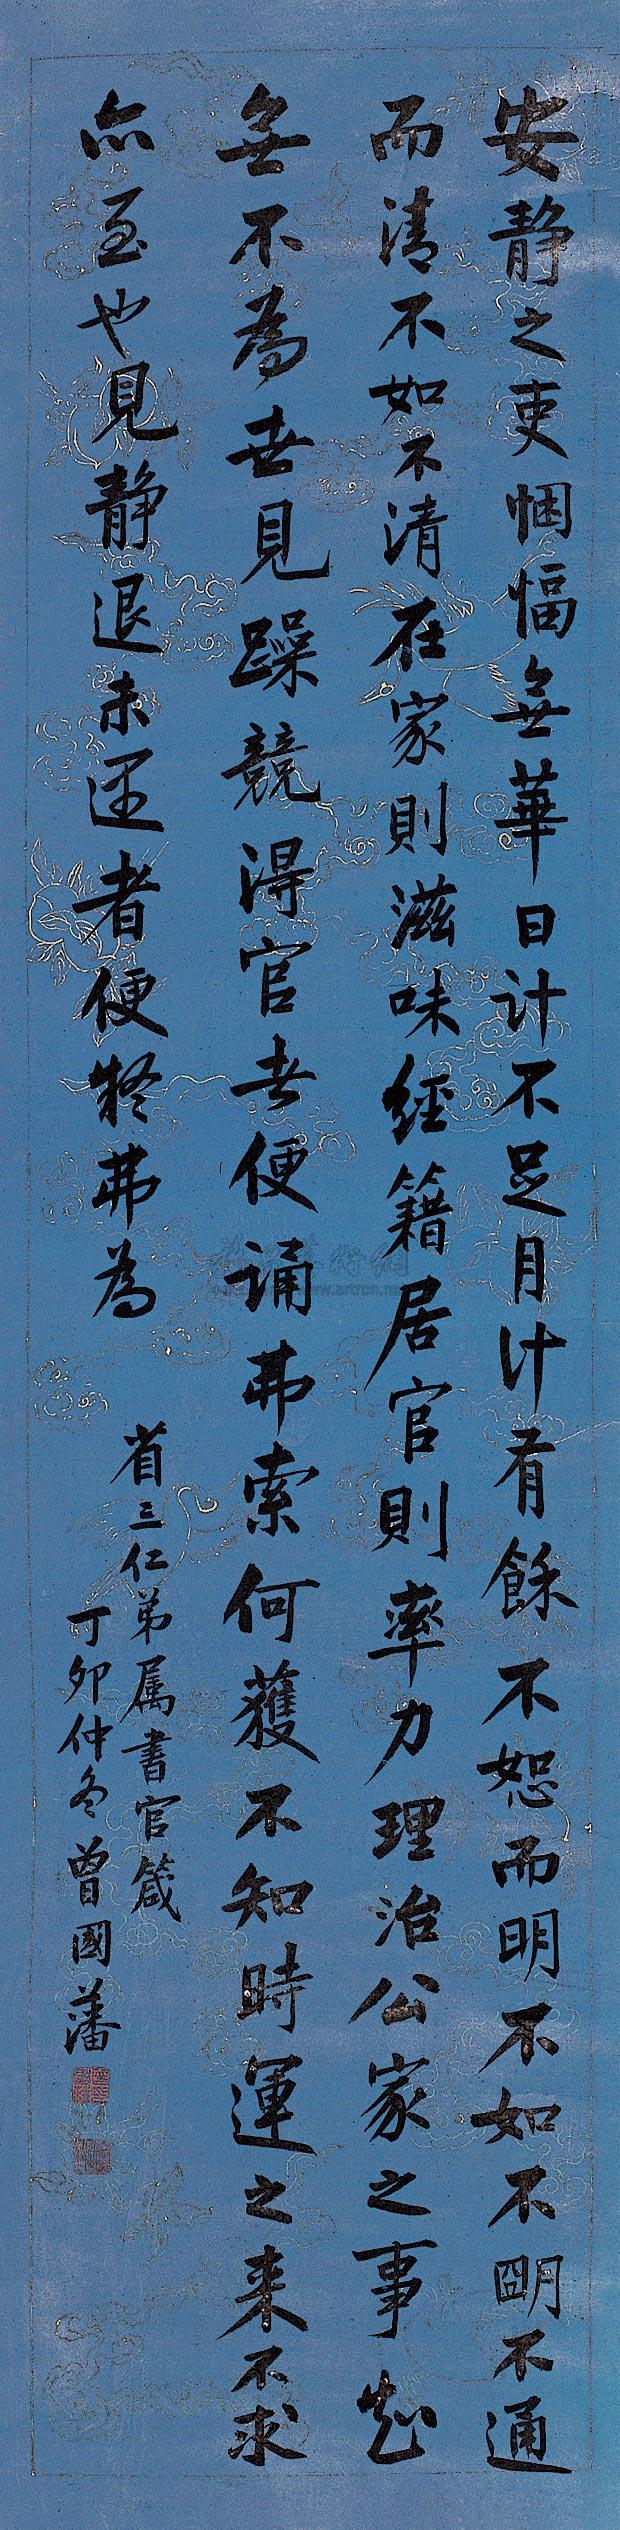 安静之吏悃愊無華日計不足月計有餘不恕而明不如不明不通
而清不如不清在家則滋味經籍居官則率力理治公家之事知
無不為世見躁競得官者便誦弗索何獲不知時運之来不求
亦至也見静退未遇者便
弗為
省三仁弟属書官箴
丁卯仲冬曾國藩